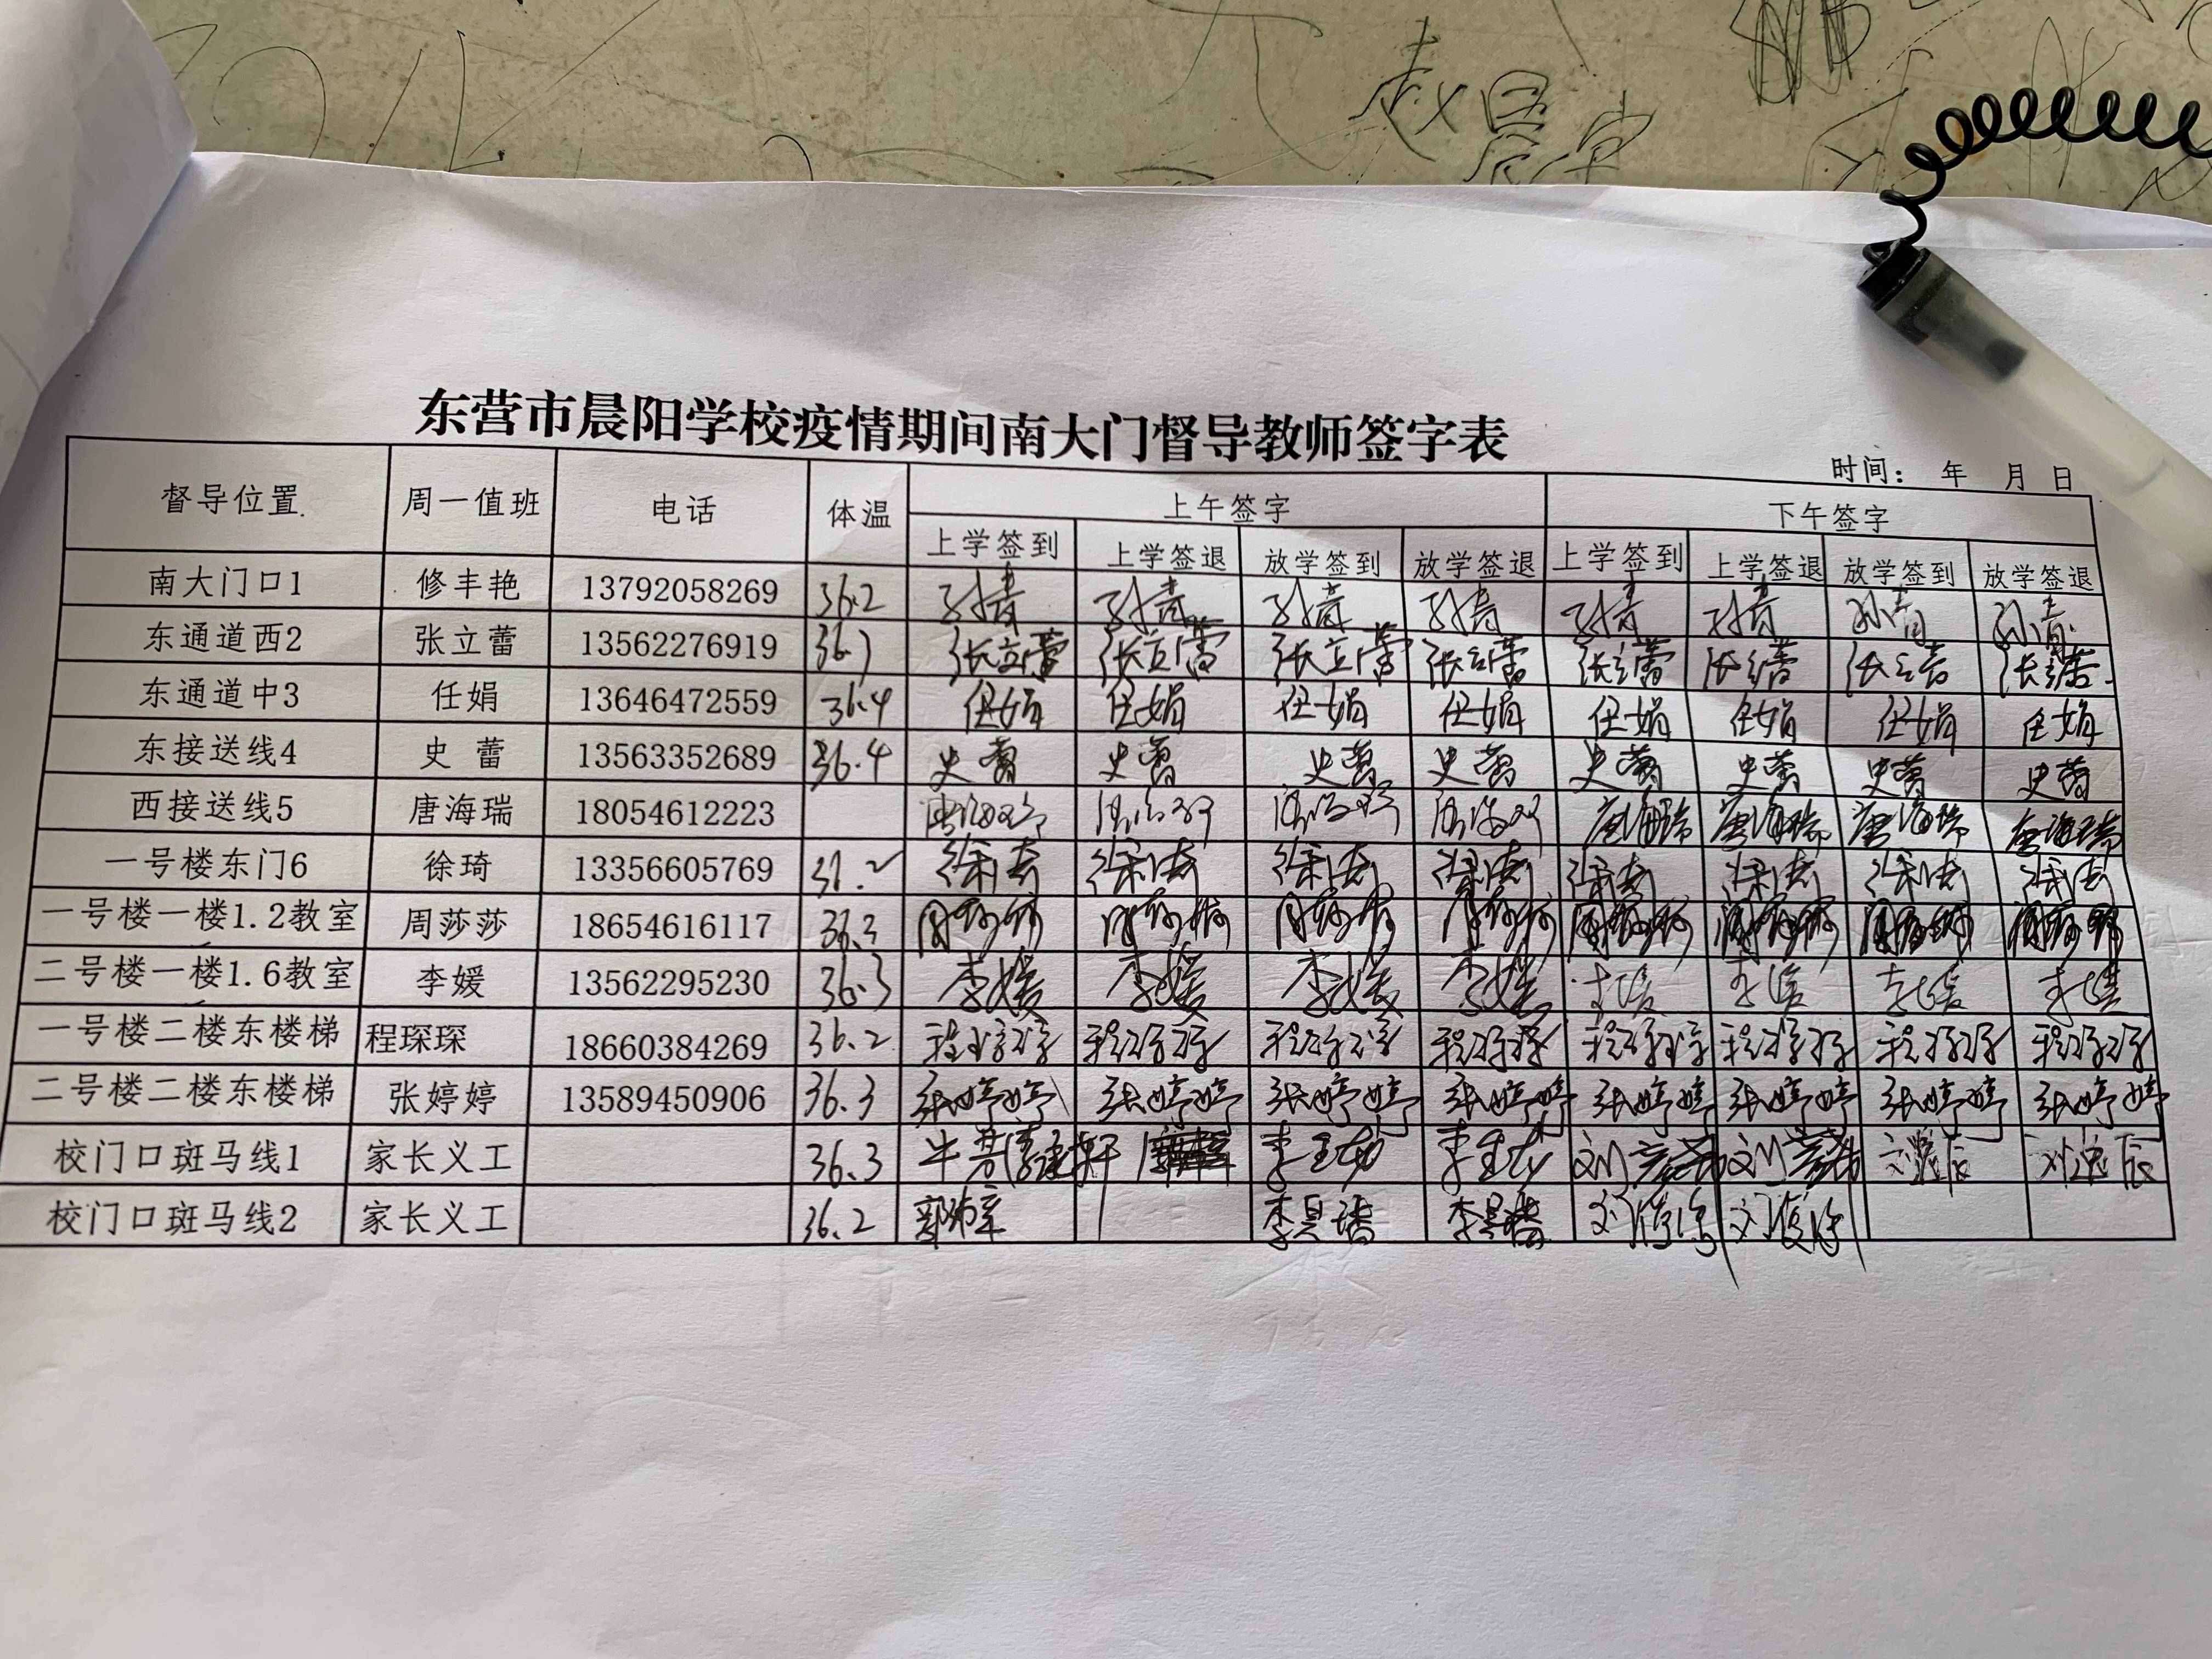 赵晨
东营市晨阳学校疫情期间南大门督导教师签字表
时间： 年 月 日
督导位置 周一值班 电话 体温 上午签字 下午签字
上学签到 上学签退 放学签到 放学签退 上学签到 上学签退 放学签到 放学签退
南大门口1 修丰艳 13792058269 36.2 孙青 孙青 孙青 孙青 孙青 孙青 孙青 孙青
东通道西2 张立蕾 13562276919 张立蕾 张立蕾 张立蕾 张立蕾 张立蕾 张立蕾 张立蕾 张立蕾
东通道中3 任娟 13646472559 36.4 任娟 任娟 任娟 任娟 任娟 任娟 任娟 任娟
东接送线4 史 蕾 13563352689 36.4 史蕾 史蕾 史蕾 史蕾 史蕾 史蕾 史蕾 史蕾
西接送线5 唐海瑞 18054612223 唐海瑞 唐海瑞 唐海瑞 唐海瑞 唐海瑞 唐海瑞 唐海瑞 唐海瑞
一号楼东门6 徐琦 13356605769
一号楼一楼1.2教室 周莎莎 18654616117 36.3 周莎莎 周莎莎 周莎莎 周莎莎 周莎莎 周莎莎 周莎莎 周莎莎
二号楼一楼1.6教室 李媛 13562295230 36.3 李媛 李媛 李媛 李媛 李媛 李媛 李媛 李媛
一号楼二楼东楼梯 程琛琛 18660384269 36.2 程琛琛 程琛琛 程琛琛 程琛琛 程琛琛 程琛琛 程琛琛 程琛琛
二号楼二楼东楼梯 张婷婷 13589450906 36.3 张婷婷 张婷婷 张婷婷 张婷婷 张婷婷 张婷婷 张婷婷 张婷婷
校门口斑马线1 家长义工 36.3
校门口斑马线2 家长义工 36.2